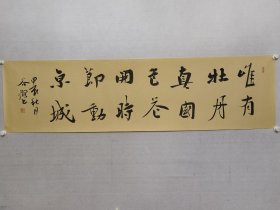 唯有
牡丹
真国
色花
開時
節動
京城
甲辰秋月